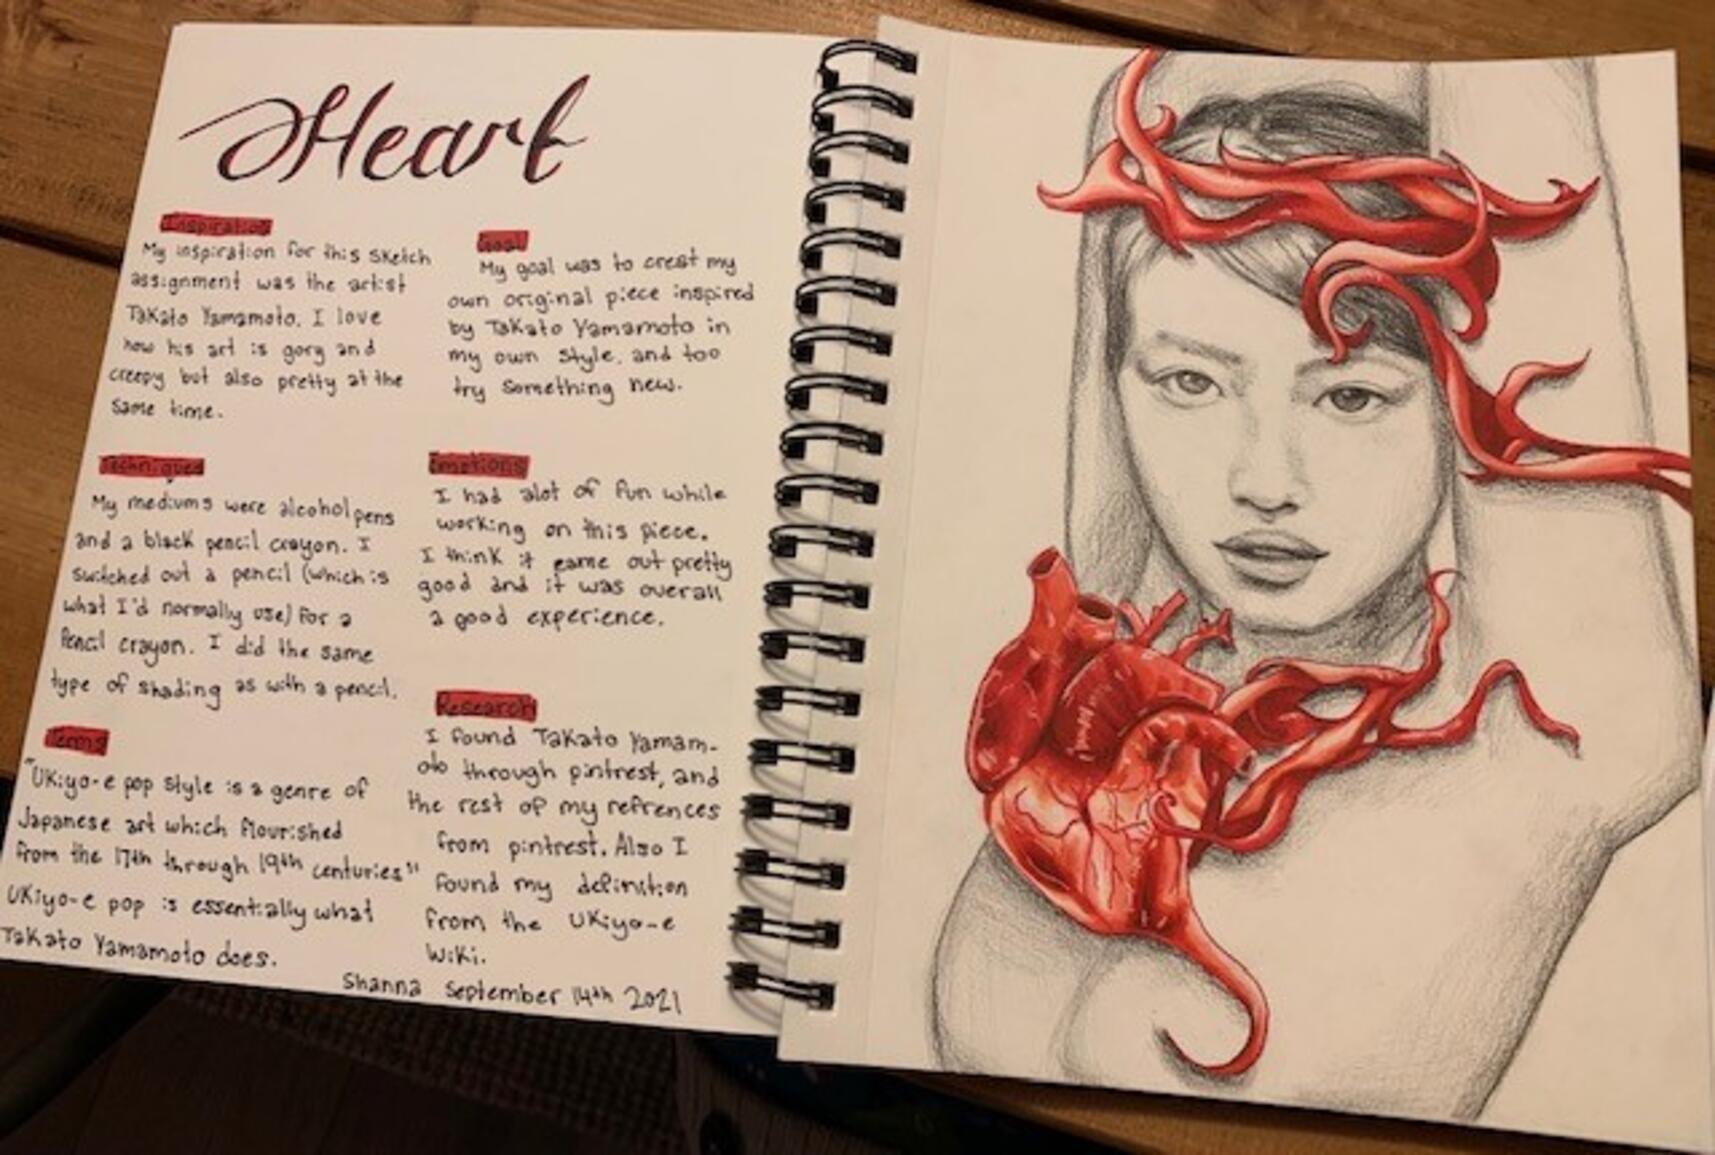 Heart
Inspiration
My inspiration for this sketch
assignment was the artist
Takato Yamamoto. I love
how his art is gory and
creepy but also pretty at the
same time.
Goal
My goal was to creat my
own original piece inspired
by Takato Yamamoto in
my own style. and too
try something new.
Techniques
My mediums were alcohol pens
and a black pencil crayon. I
switched out a pencil (which is
what I'd normally use) for a
Pencil crayon. I did the same
type of shading as with a pencil.
Emotions
I had alot of fun while
working on this piece.
I think it came out pretty
good and it was overall
a good experience.
Terms
"Ukiyo-e pop style is a genre of
Japanese art which flourished
from the 17th through 19th centuries"
Ukiyo-e pop is essentially what
Takato Yamamoto does.
Research
I found Takato Yamam-
oto through pintrest, and
the rest of my refrences
from pintrest. Also I
found my definition
from the Ukiyo-e
wiki.
Shanna September 14th 2021